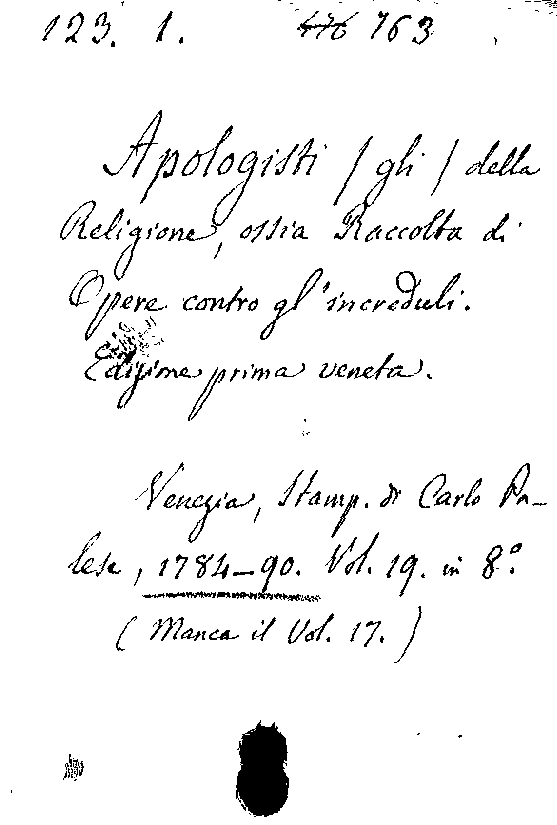 123. 1. 476 763
Apologisti / gli / della
Religione, ossia Raccolta di
Opere contro gl'increduli.
Edizione prima veneta.
Venezia, Stamp. di Carlo Pa-
lese, 1784-90. Vol. 19. in 8.º
(Manca il Vol. 17.)